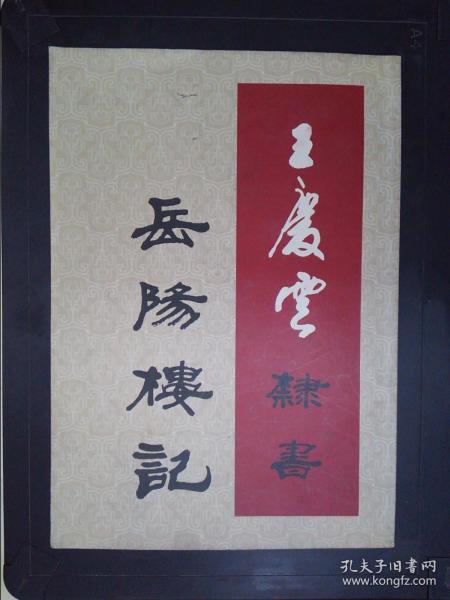 王慶雲
隸書
岳陽樓記
A4
孔夫子旧书网
www.kongfz.com